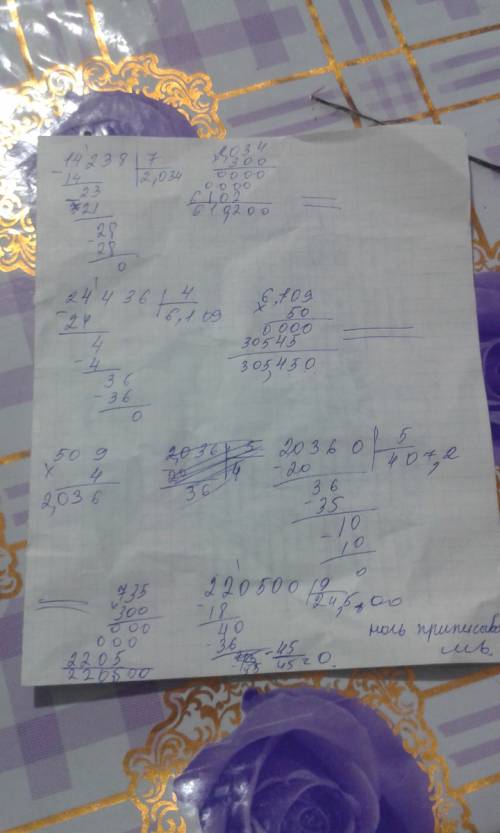 14'238 | 7
- 14 2,034
23
- 21
28
- 28
0
2,034
x 300
0000
0000
6102
610200
24'436 | 4
- 24 6,109
4
- 4
36
- 36
0
6,109
x 50
0000
30545
305,450
509
x 4
2,036
2,036 | 5
20 4
36
20360 | 5
- 20 407,2
36
- 35
10
- 10
0
735
x 300
000
000
2205
220500
220500 | 9
- 18 24,5,00
40
- 36
45
- 45 = 0.
ноль приписа